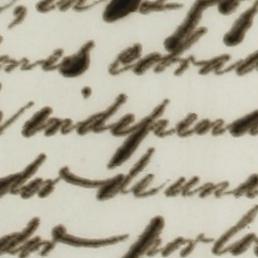 , en
ones cobrad
independ
dor de una
dor por lo